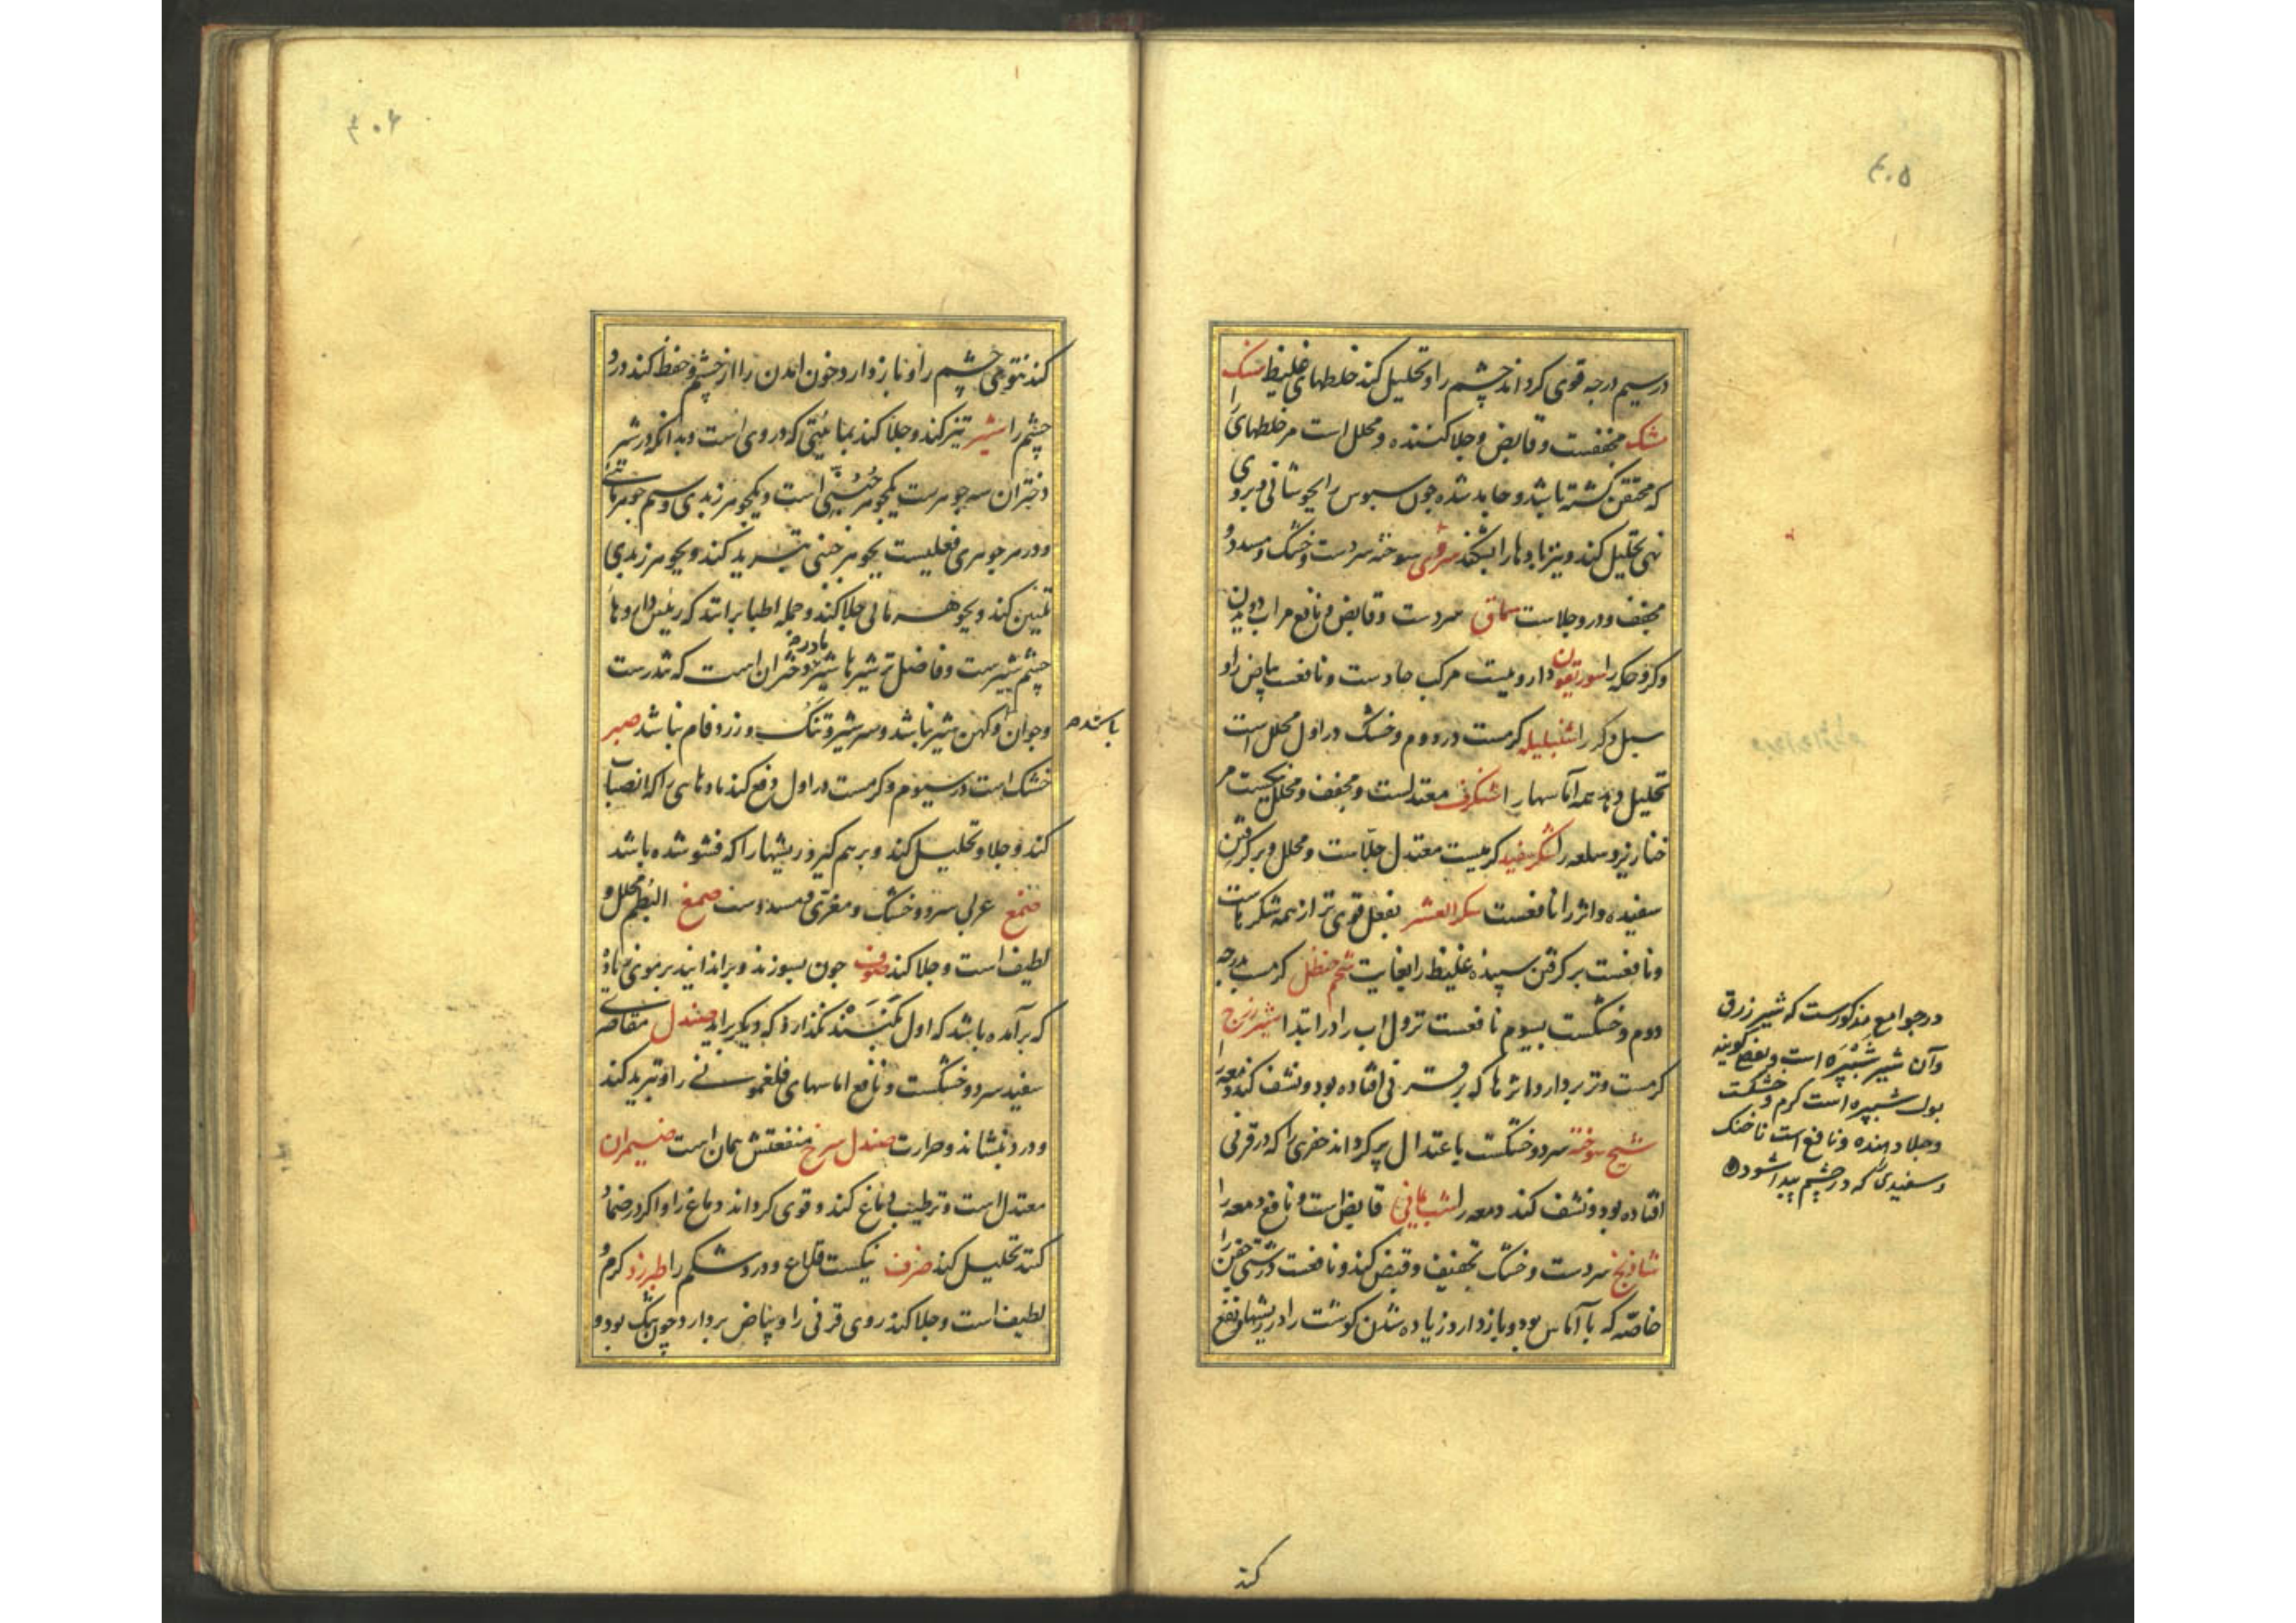 ۴۰۵
درسیم درجه قوی کرداند چشم را و تحلیل کند خلطهای غلیظ
مشک مجففست و قابض و جلا کننده و محلل است مر خلطهای را
که محتقن کشته باشد و جامد شده چون سبوس را بجوشانی و بروی
نهی تحلیل کند و نیز بادها را بشکند سوخته سردست و خشک و مسدد و
مجفف و درو جلاست سماق سردست و قابض و نافع مر
و کر و حکه را سوریقون دارویست مرکب حادست و نافعست بیاض را و
سبل و کر را شنبلیله کرمست در دوم و خشک در اول محلل است
تحلیل دهد همه آماسها را شنکرف معتدلست و مجفف و محلل مر
خنازیر و سلعه را شکر سفید کرمیست معتدل جلاست و محلل و بر کرفتن
سفیده و اثر را نافعست سکر العشر بفعل قوی تر از همه شکرهاست
و نافعست بر کرفتن سپیده غلیظ را بغایت شحم حنظل کرمست بدرجه
دوم و خشکست بسیوم نافعست نزول اب را در ابتدا شیرزج
کرمست و تر بردارد اثرها که بر قرنی افتاده بود و نشف کند دمعه را
شیح سوخته سرد و خشکست باعتدال پر کرداند حفری را که در قرنی
افتاده بود و نشف کند دمعه را شب یمانی قابض است و نافع دمعه را
شادنج سردست و خشک تجفیف و قبض کند و نافعست درشتی جفن را
خاصه که با آماس بود و باز دارد زیاده شدن کوشت را در ریشها و نفع
در جوامع مذکورست که شیرزق
وآن شیر شبپره است و بعضی کویند
بول شبپره است کرم و خشکست
و جلا دهنده و نافع است ناخنک
و سفیدی را که در چشم پیدا شود
کند
۴۰۶
کند نتوهای چشم را و باز دارد خون امدن را از چشم و حفظ کند درو
چشم را شیر تیز کند و جلا کند بمائیتی که در وی است و بدانکه در شیر
دختران سه جوهرست یکجوهر جبنی است و یکجوهر زبدی و سیم جوهر مائی
و در هر جوهری فعلیست بجوهر جبنی تبرید کند و بجوهر زبدی
تلیین کند و بجوهر مائی جلا کند و جمله اطبا برانند که رئیس داروها
چشم شیرست و فاضل تر شیرها شیر مادر دختران است که تندرست
و جوان و کهن شیر نباشد و سر شیر و تنک و زرد فام نباشد صبر
باشد
خشک است در سیوم و کرمست در اول دفع کند ماده هایی را که انصباب
کند و جلا و تحلیل کند و برهم کیرد ریشها را که فشو شده باشد
صمغ عربی سرد و خشک و مغری و مسددست صمغ البطم محلل و
لطیف است و جلا کند صوف چون بسوزند و براندایند بر موی زیاده
که برآمده باشد که اول بکنند نکذارد که دیکر براید صندل مقاصری
سفید سرد و خشکست و نافع اماسهای فلغمونی را و تبرید کند
و درد بنشاند و حرارت صندل سرخ منفعتش همان است ضیمران
معتدل است و ترطیب دماغ کند و قوی کرداند دماغ را و اکر در ضماد
کنند تحلیل کند صرف نیکست قلاع و درد شکم را طبرزد کرم و
لطیف است و جلا کند روی قرنی را و بیاض بردارد چون تنک بود و